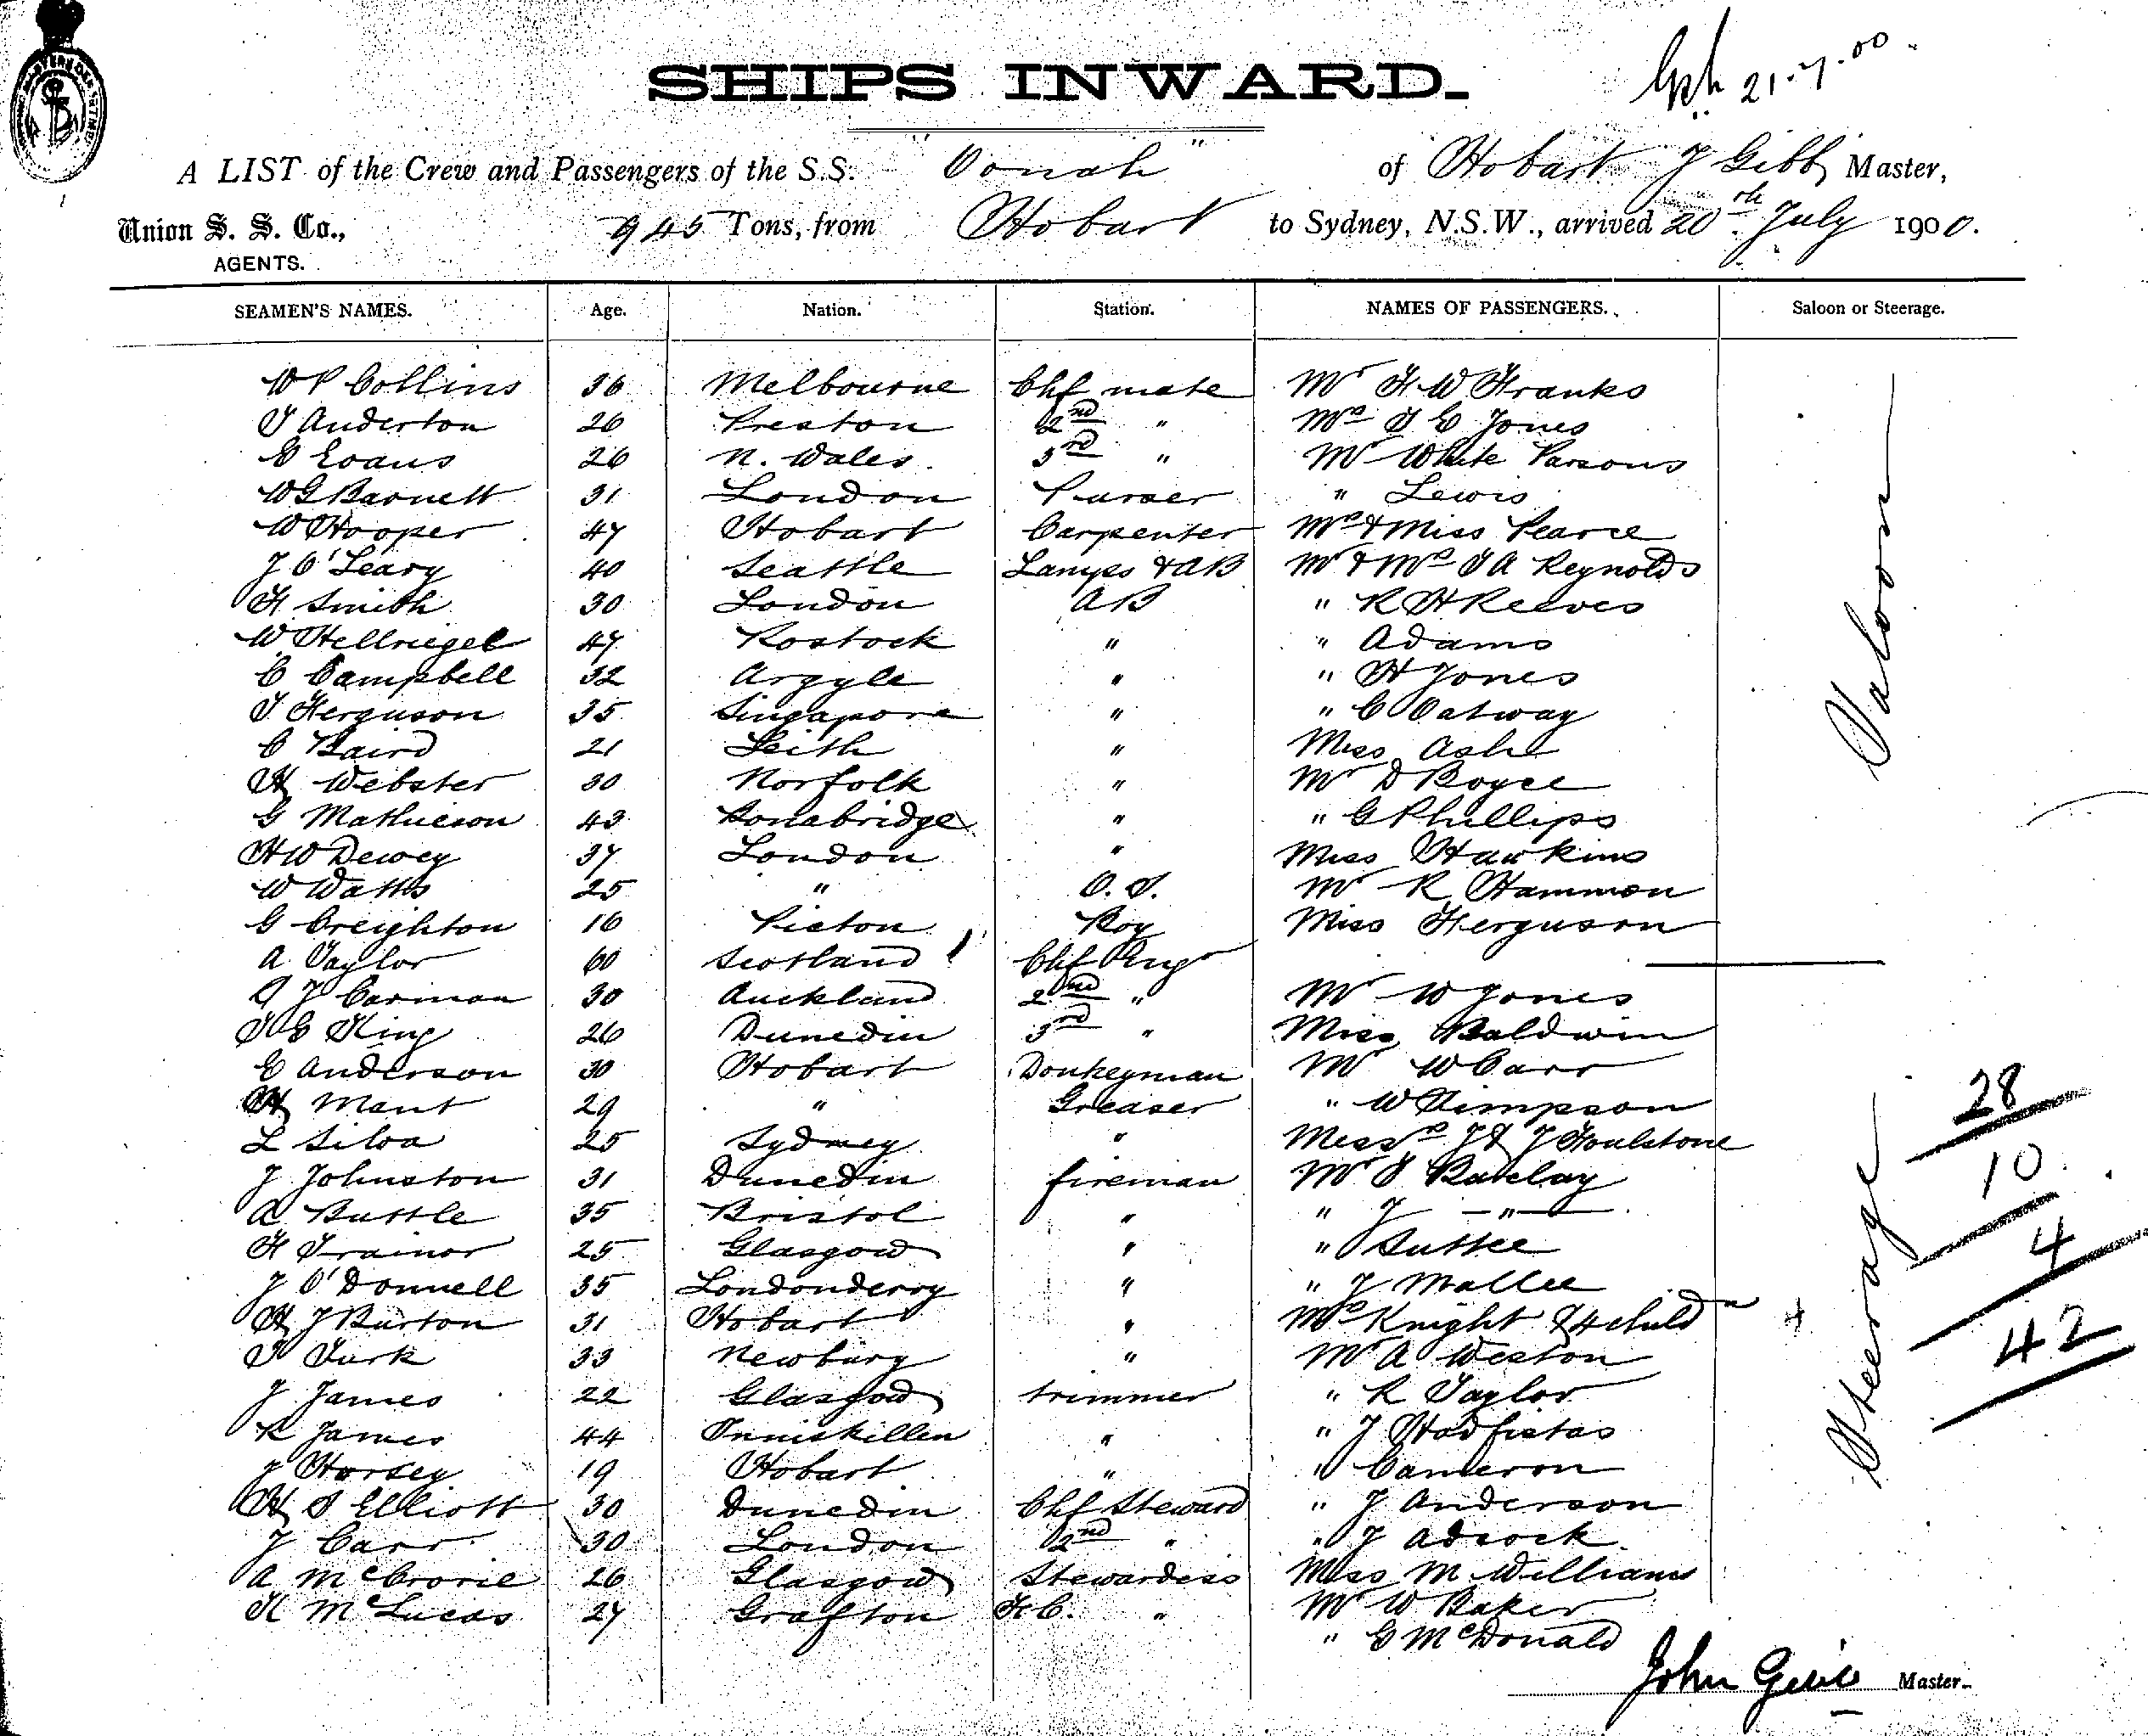 SHIPS INWARD.
21.7.00
A LIST of the Crew and Passengers of the S.S. "Oonah" of Hobart J Gibb, Master,
Union S. S. Co., 945 Tons, from Hobart to Sydney, N.S.W., arrived 20th July 1900.
AGENTS.
SEAMEN'S NAMES. Age. Nation. Station. NAMES OF PASSENGERS. Saloon or Steerage.
W P Collins 36 Melbourne Chf mate Mr F W Franks
T Anderton 26 Preston 2nd " Mrs T E Jones
E Evans 26 N. Wales 3rd " Mr White Parsons
W G Barnett 31 London Purser " Lewis
W Hooper 47 Hobart Carpenter Mrs & Miss Pearce
J O'Leary 40 Seattle Lamps & AB Mr & Mrs T A Reynolds
F Smith 30 London AB " R H Reeves
W Hellriegel 47 Rostock " " Adams
C Campbell 32 Argyle " " H Jones
T Ferguson 35 Singapore " " C Oatway
C Baird 21 Leith " Miss Ash
H Webster 30 Norfolk " Mr D Boyce
G Mathieson 43 Bonabridge " " G Phillips
H W Dewey 37 London " Miss Hawkins
W Watts 25 " O.S. Mr R Hammon
G Creighton 16 Picton Boy Miss Ferguson
Saloon
A Taylor 60 Scotland Chf Engr
A J Carman 30 Auckland 2nd " Mr W Jones
T G King 26 Dunedin 3rd " Miss Baldwin
E Anderson 30 Hobart Donkeyman Mr W Carr
H Mant 29 " Greaser " W Simpson
L Silva 25 Sydney " Messrs J & J Foulstone
J Johnston 31 Dunedin fireman Mr S Barclay
A Buttle 35 Bristol " " J — " —
F Trainor 25 Glasgow " " Suttee
J O'Donnell 35 Londonderry " " J Mallee
H J Burton 31 Hobart " Mrs Knight & 4 childn 4
T Turk 33 Newbury " Mr A Weston
J James 22 Glasgow trimmer " R Taylor
R James 44 Inniskillen " " J
J Horsey 19 Hobart " " Cameron
H S Elliott 30 Dunedin Chf Steward " J Anderson
J Carr 30 London 2nd " " J Adcock
A McCrorie 26 Glasgow Stewardess Miss M Williams
K McLucas 27 Grafton F.C. " Mr W Baker
" E McDonald
Steerage
28
10
4
42
John Gibb Master.